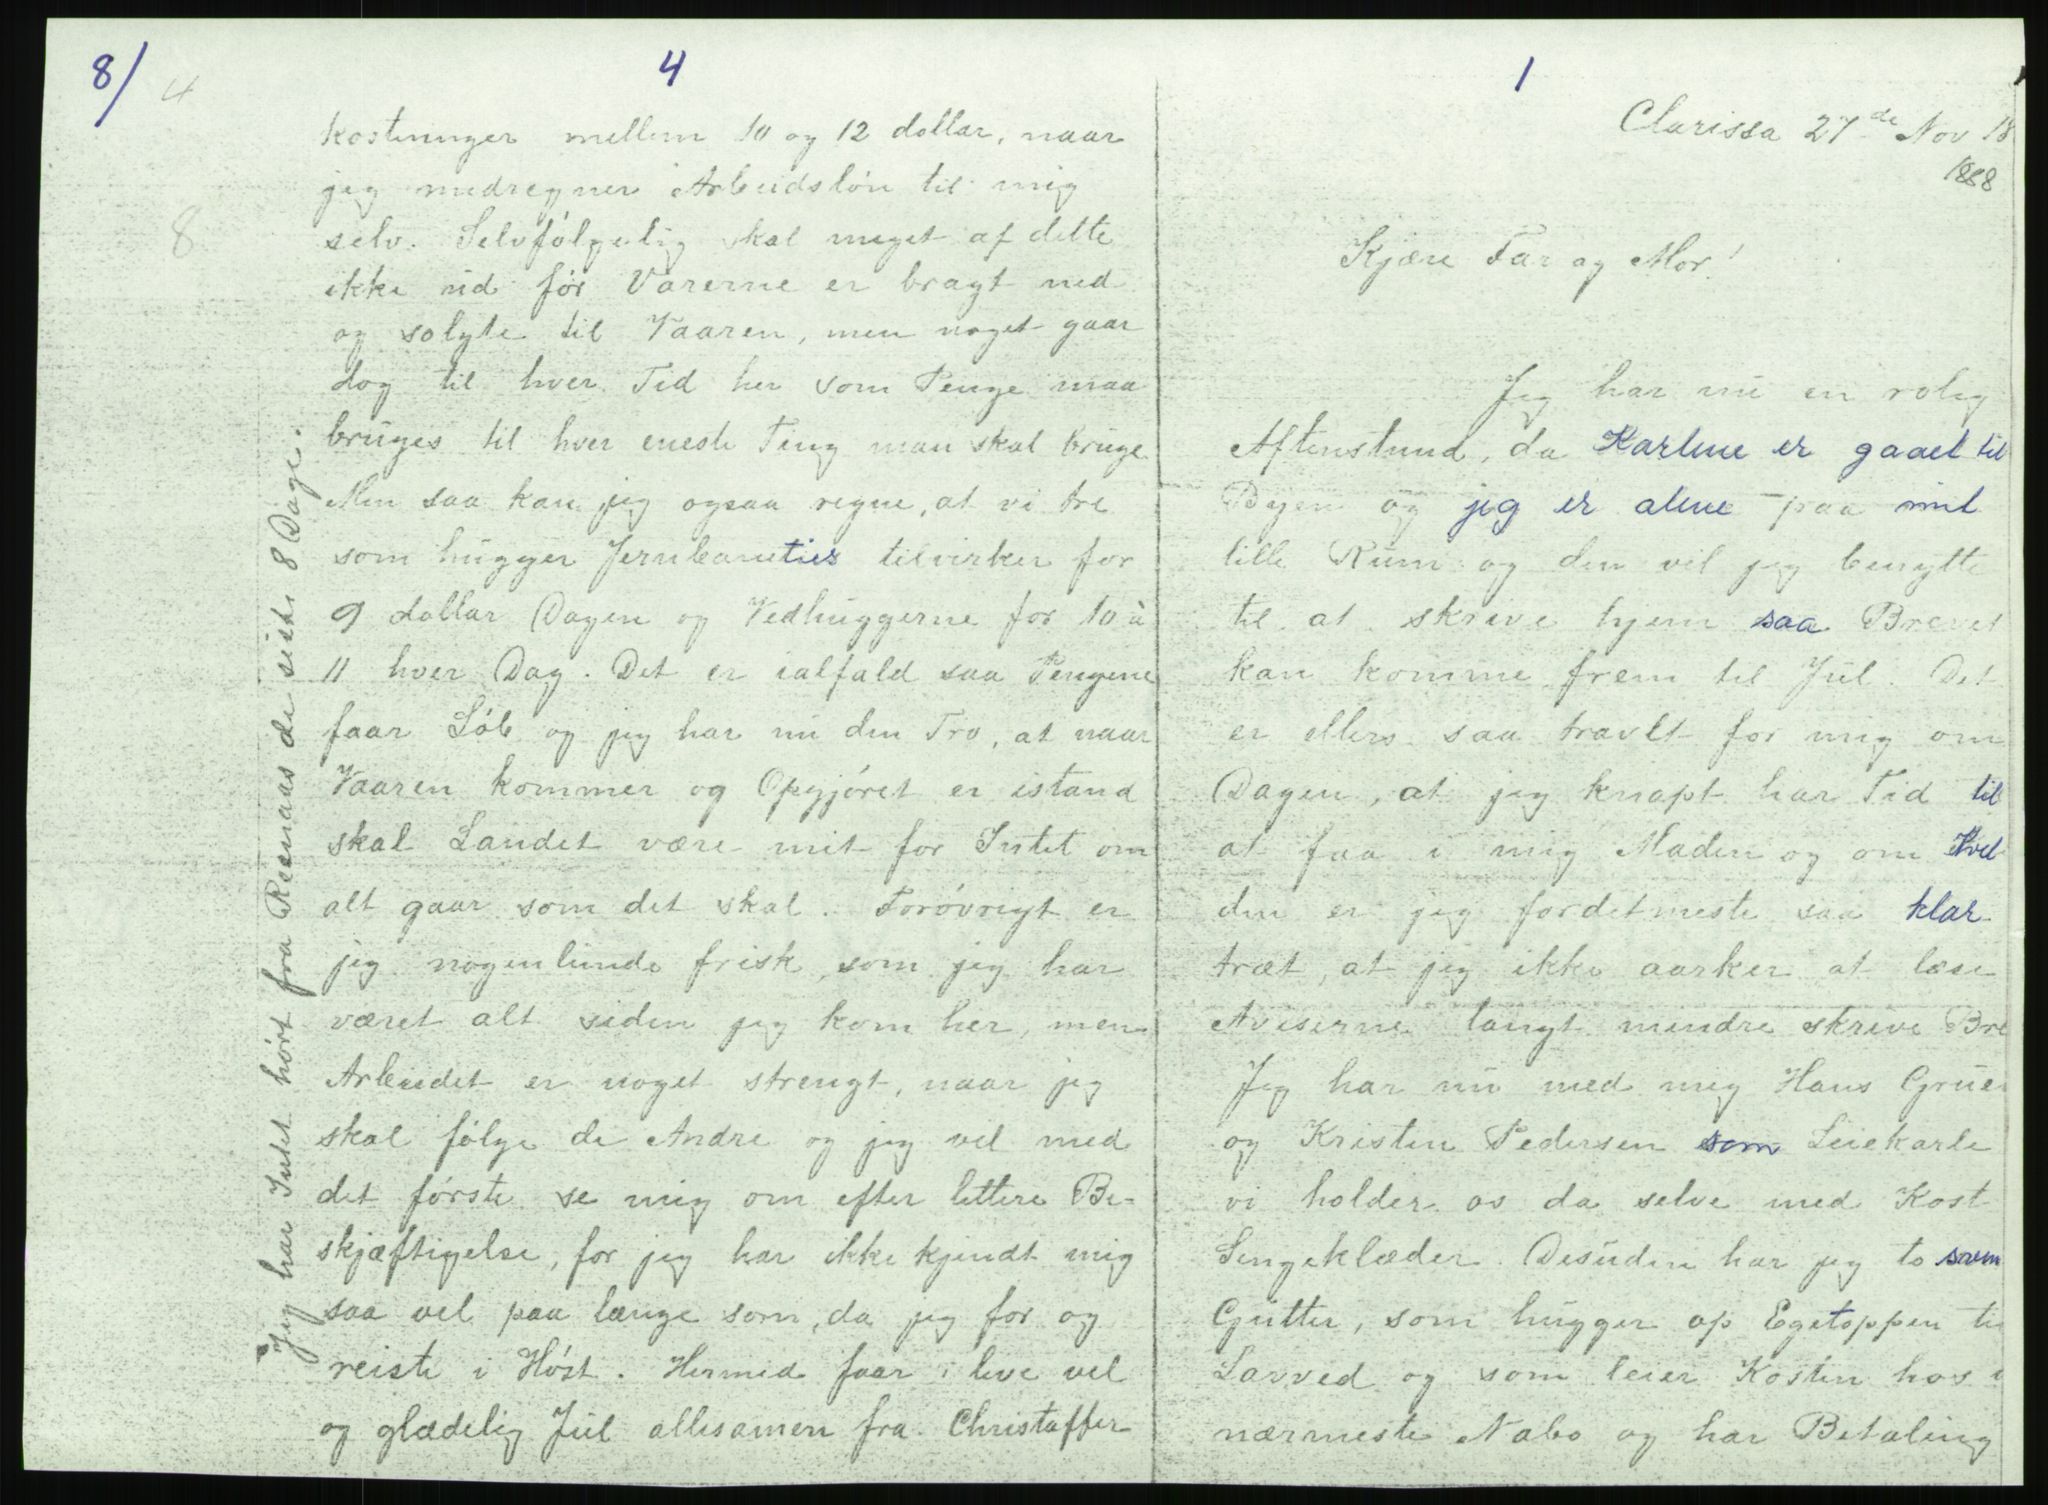 8/
4
8
4
kostninger mellem 10 og 12 dollar, naar
jeg medregner Arbeidsløn til mig
selv. Selvfølgelig skal meget af dette
ikke ud før Varerne er bragt ned
og solgte til Vaaren, men noget gaar
dog til hver Tid her som Penge maa
bruges til hver eneste Ting man skal bruge.
Men saa kan jeg ogsaa regne, at vi tre
som hugger Jernbaneties tilvirker for
9 dollar Dagen og Vedhuggerne for 10 à
11 hver Dag. Det er ialfald saa Pengene
faar Løb og jeg har nu den Tro, at naar
Vaaren kommer og Opgjøret er istand
skal Landet være mit for Intet om
alt gaar som det skal. Forøvrigt er
jeg nogenlunde frisk, som jeg har
været alt siden jeg kom her, men
Arbeidet er noget strengt, naar jeg
skal følge de Andre og jeg vil med
det første se mig om efter lettere Be-
skjæftigelse, for jeg har ikke kjendt mig
saa vel paa længe som, da jeg for og
reiste i Høst. Hermed faar i leve vel
og glædelig Jul allesamen fra Christoffer
Jeg har Intet hørt fra de siste 8 Dage.
1
Clarissa 27de Nov 18
1888
Kjære Far og Mor!
Jeg har nu en rolig
Aftenstund, da Karline er gaaet til
Byen og jeg er alene paa mit
lille Rum og den vil jeg benytte
til at skrive hjem saa Brevet
kan komme frem til Jul. Det
er ellers saa travlt for mig om
Dagen, at jeg knapt har Tid til
at faa i mig Maden og om Kvel
den er jeg fordetmeste saa klar
træt, at jeg ikke aarker at læse
Aviserne langt mindre skrive Bre
Jeg har nu med mig Hans Grue
og Kristen Pedersen som Leiekarle
vi holder os da selve med Kost
Sengeklæder. Desuden har jeg to
Gutter, som hugger op Egetoppen ti
Savved og som leier Kosten hos
nærmeste Nabo og har Betaling